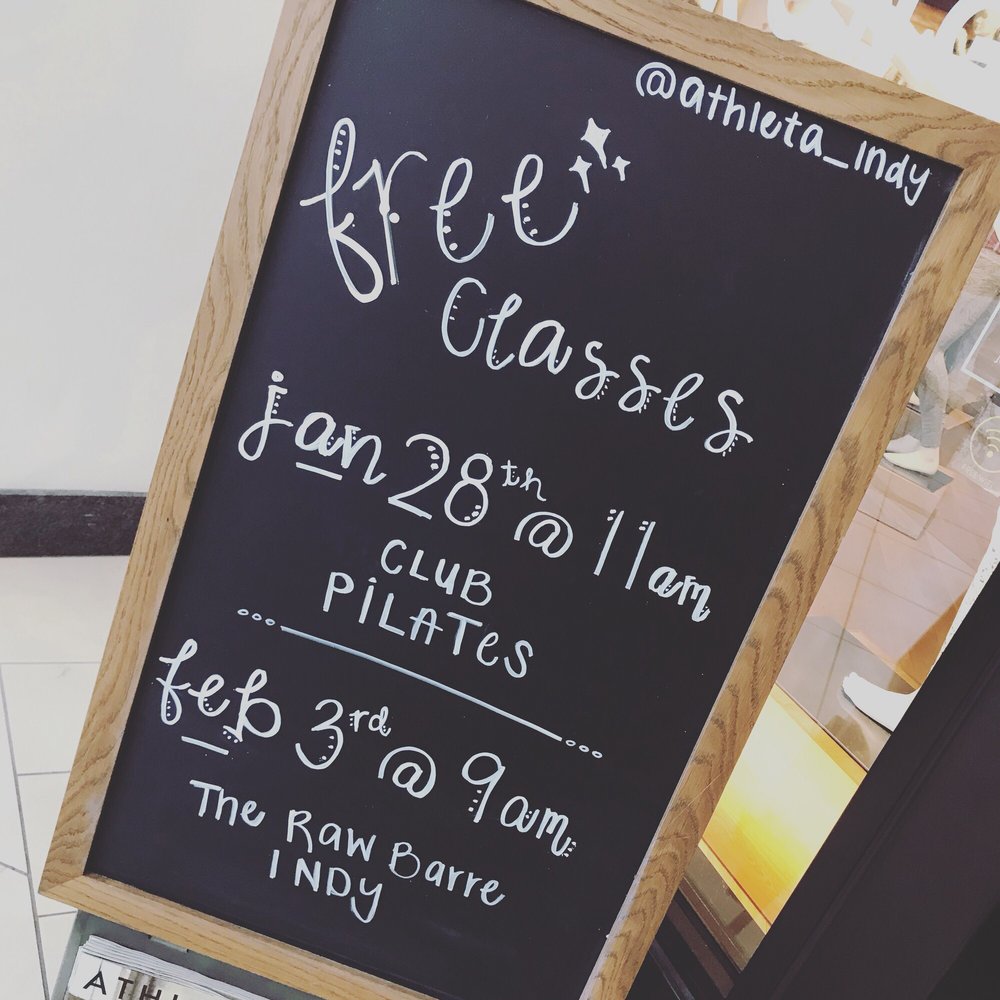 @athleta_indy
free
classes
jan 28th @ 11am
CLUB
PiLATes
feb 3rd @ 9am
The Raw Barre
INDY